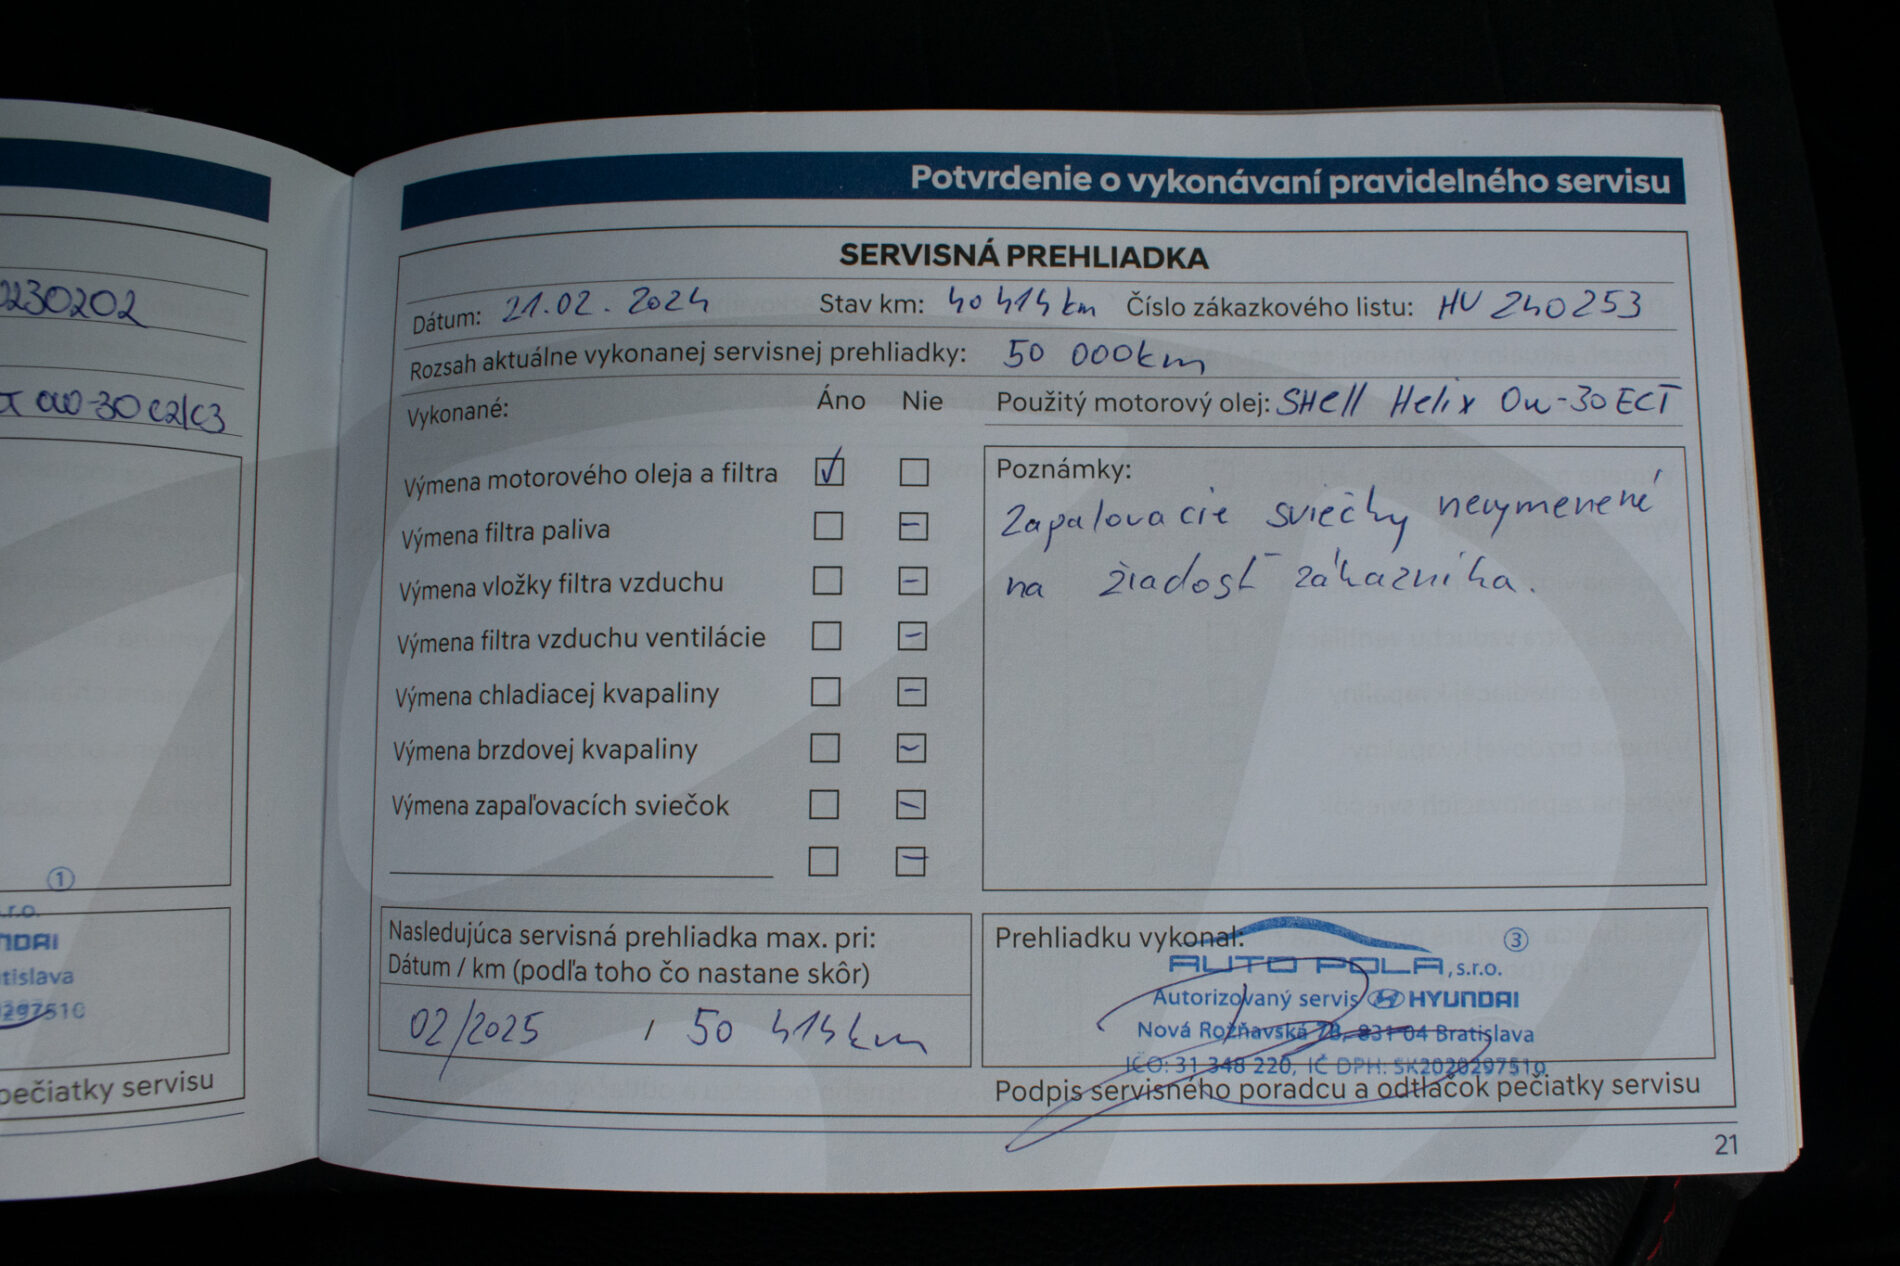 0230202
0W-30 C2/C3
①
s.r.o.
NDAI
atislava
297510
pečiatky servisu
Potvrdenie o vykonávaní pravidelného servisu
SERVISNÁ PREHLIADKA
Dátum: 21.02.2024 Stav km: 40 414 km Číslo zákazkového listu: HU 240253
Rozsah aktuálne vykonanej servisnej prehliadky: 50 000km
Vykonané: Áno Nie Použitý motorový olej: SHell Helix 0w-30 ECT
Výmena motorového oleja a filtra
Výmena filtra paliva
Výmena vložky filtra vzduchu
Výmena filtra vzduchu ventilácie
Výmena chladiacej kvapaliny
Výmena brzdovej kvapaliny
Výmena zapaľovacích sviečok
Poznámky:
Zapalovacie sviečky nevymenené
na žiadosť zákazníka.
Nasledujúca servisná prehliadka max. pri:
Dátum / km (podľa toho čo nastane skôr)
02/2025 / 50 414 km
Prehliadku vykonal:
③
AUTO POLA, s.r.o.
Autorizovaný servis HYUNDAI
Nová Rožňavská 7B, 831 04 Bratislava
IČO: 31 348 220, IČ DPH: SK2020297510
Podpis servisného poradcu a odtlačok pečiatky servisu
21